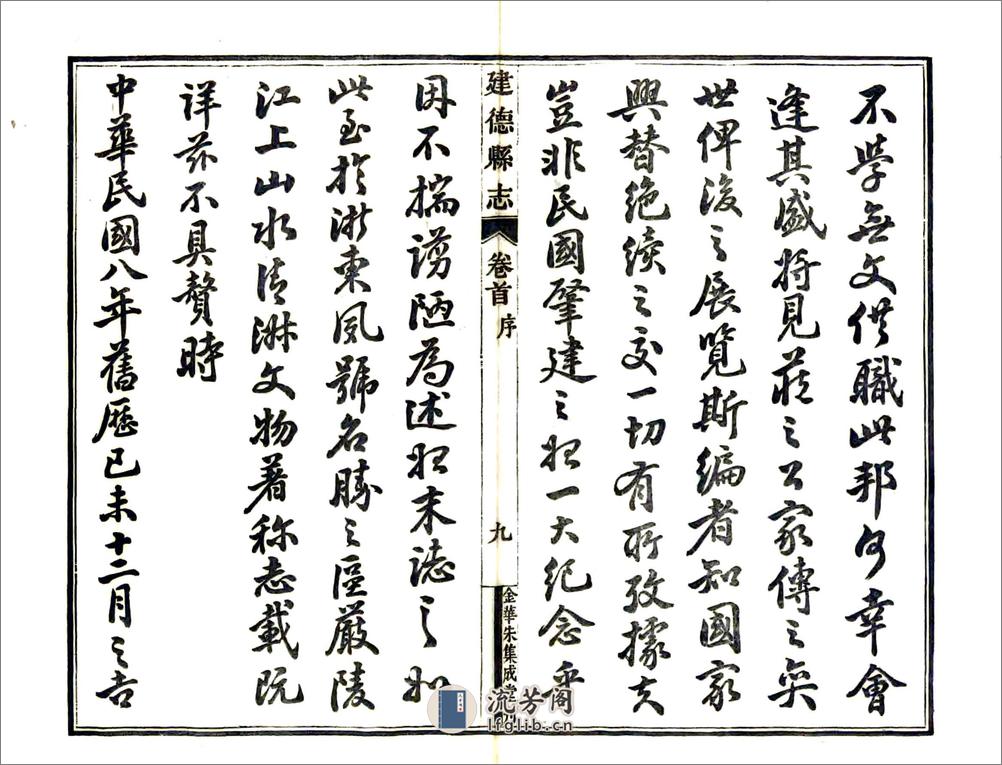 不學無文供職此邦何幸會
逢其盛將見藏之公家傳之奕
世俾後之展覽斯編者知國家
興替絕續之交一切有所攷據夫
豈非民國肇建之始一大紀念乎
建德縣志 卷首 序 九 金華朱集成堂刊
因不揣謭陋為述始末誌之如
此至於浙東夙號名勝之區嚴陵
江上山水清淑文物著称志載既
詳茲不具贅時
中華民國八年舊歷已未十二月之吉
流芳阁
lfglib.cn